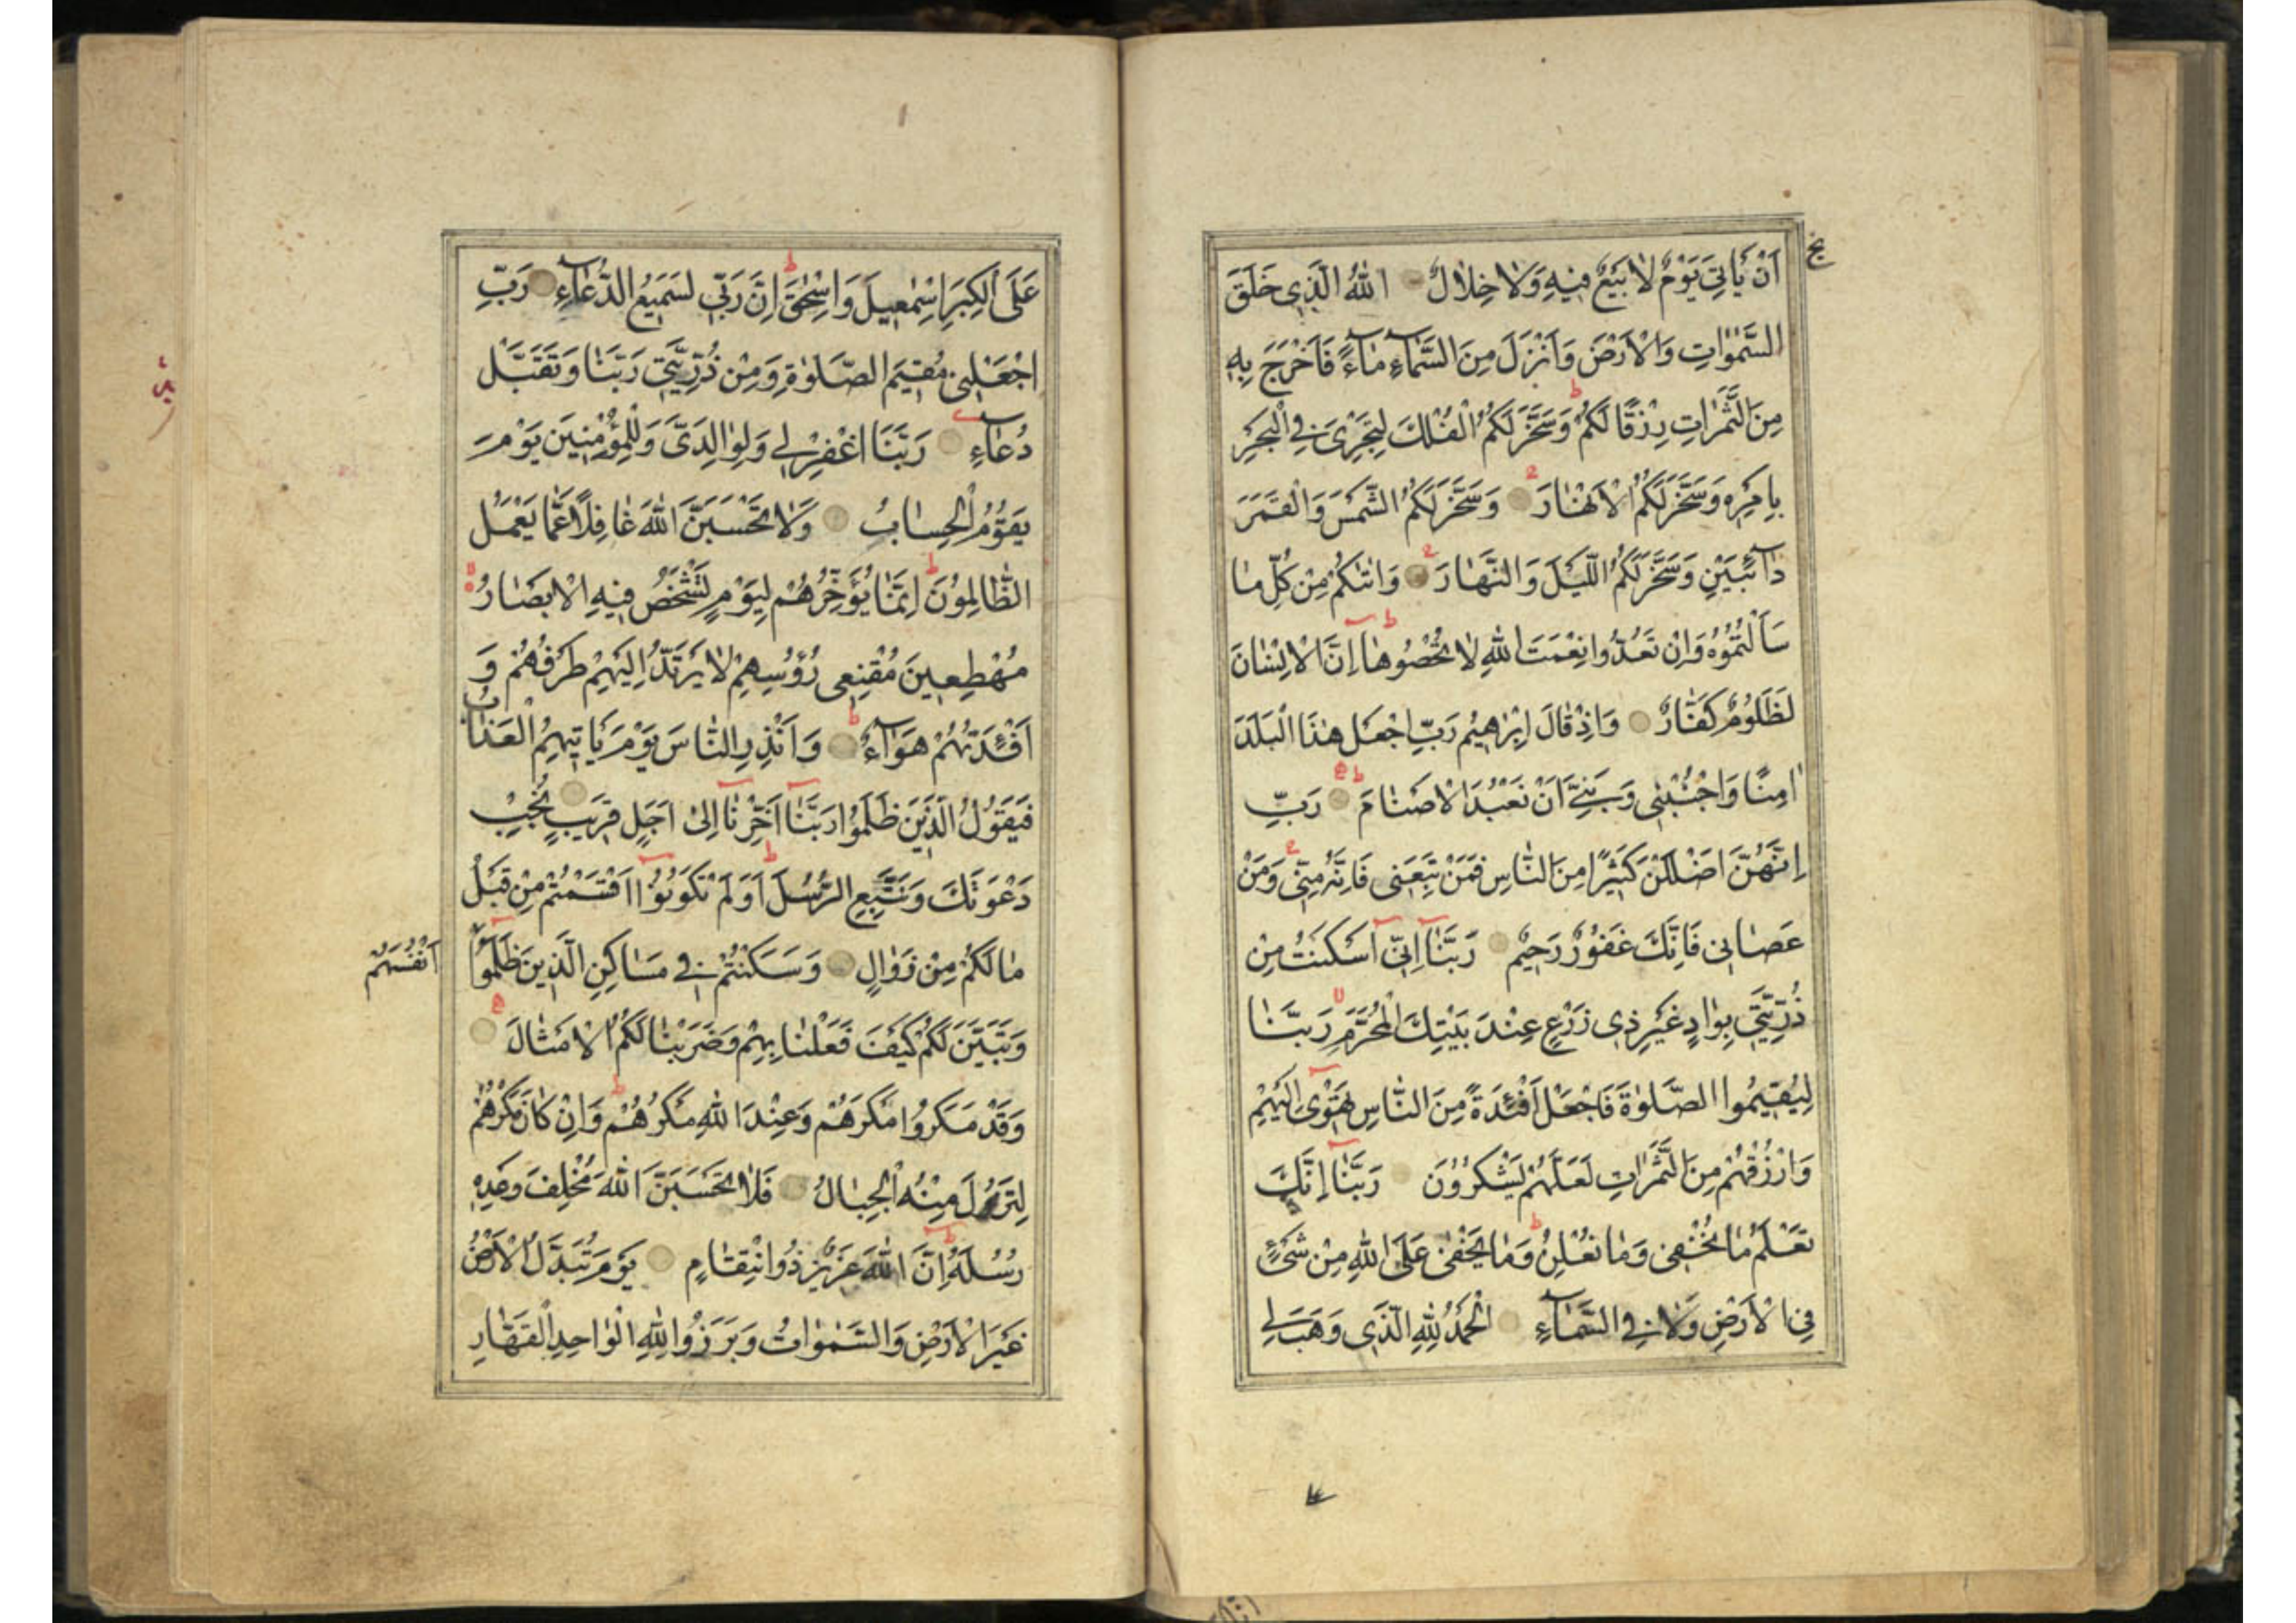 اَنْ يَأْتِيَ يَوْمٌ لَا بَيْعٌ فِيهِ وَلَا خِلَالٌ اَللّٰهُ الَّذِي خَلَقَ
السَّمٰوَاتِ وَالْاَرْضَ وَاَنْزَلَ مِنَ السَّمَاءِ مَاءً فَاَخْرَجَ بِهِ
مِنَ الثَّمَرَاتِ رِزْقًا لَكُمْ وَسَخَّرَ لَكُمُ الْفُلْكَ لِتَجْرِيَ فِي الْبَحْرِ
بِاَمْرِهِ وَسَخَّرَ لَكُمُ الْاَنْهَارَ وَسَخَّرَ لَكُمُ الشَّمْسَ وَالْقَمَرَ
دَائِبَيْنِ وَسَخَّرَ لَكُمُ اللَّيْلَ وَالنَّهَارَ وَاٰتٰكُمْ مِنْ كُلِّ مَا
سَاَلْتُمُوهُ وَاِنْ تَعُدُّوا نِعْمَتَ اللّٰهِ لَا تُحْصُوهَا اِنَّ الْاِنْسَانَ
لَظَلُومٌ كَفَّارٌ وَاِذْ قَالَ اِبْرٰهِيمُ رَبِّ اجْعَلْ هٰذَا الْبَلَدَ
اٰمِنًا وَاجْنُبْنِي وَبَنِيَّ اَنْ نَعْبُدَ الْاَصْنَامَ رَبِّ
اِنَّهُنَّ اَضْلَلْنَ كَثِيرًا مِنَ النَّاسِ فَمَنْ تَبِعَنِي فَاِنَّهُ مِنِّي وَمَنْ
عَصَانِي فَاِنَّكَ غَفُورٌ رَحِيمٌ رَبَّنَا اِنِّي اَسْكَنْتُ مِنْ
ذُرِّيَّتِي بِوَادٍ غَيْرِ ذِي زَرْعٍ عِنْدَ بَيْتِكَ الْمُحَرَّمِ رَبَّنَا
لِيُقِيمُوا الصَّلٰوةَ فَاجْعَلْ اَفْئِدَةً مِنَ النَّاسِ تَهْوِي اِلَيْهِمْ
وَارْزُقْهُمْ مِنَ الثَّمَرَاتِ لَعَلَّهُمْ يَشْكُرُونَ رَبَّنَا اِنَّكَ
تَعْلَمُ مَا نُخْفِي وَمَا نُعْلِنُ وَمَا يَخْفٰى عَلَى اللّٰهِ مِنْ شَيْءٍ
فِي الْاَرْضِ وَلَا فِي السَّمَاءِ اَلْحَمْدُ لِلّٰهِ الَّذِي وَهَبَ لِي
عَلَى الْكِبَرِ اِسْمٰعِيلَ وَاِسْحٰقَ اِنَّ رَبِّي لَسَمِيعُ الدُّعَاءِ رَبِّ
اجْعَلْنِي مُقِيمَ الصَّلٰوةِ وَمِنْ ذُرِّيَّتِي رَبَّنَا وَتَقَبَّلْ
دُعَاءِ رَبَّنَا اغْفِرْ لِي وَلِوَالِدَيَّ وَلِلْمُؤْمِنِينَ يَوْمَ
يَقُومُ الْحِسَابُ وَلَا تَحْسَبَنَّ اللّٰهَ غَافِلًا عَمَّا يَعْمَلُ
الظَّالِمُونَ اِنَّمَا يُؤَخِّرُهُمْ لِيَوْمٍ تَشْخَصُ فِيهِ الْاَبْصَارُ
مُهْطِعِينَ مُقْنِعِي رُؤُسِهِمْ لَا يَرْتَدُّ اِلَيْهِمْ طَرْفُهُمْ وَ
اَفْئِدَتُهُمْ هَوَاءٌ وَاَنْذِرِ النَّاسَ يَوْمَ يَأْتِيهِمُ الْعَذَابُ
فَيَقُولُ الَّذِينَ ظَلَمُوا رَبَّنَا اَخِّرْنَا اِلٰى اَجَلٍ قَرِيبٍ نُجِبْ
دَعْوَتَكَ وَنَتَّبِعِ الرُّسُلَ اَوَلَمْ تَكُونُوا اَقْسَمْتُمْ مِنْ قَبْلُ
مَا لَكُمْ مِنْ زَوَالٍ وَسَكَنْتُمْ فِي مَسَاكِنِ الَّذِينَ ظَلَمُوا
اَنْفُسَهُمْ
وَتَبَيَّنَ لَكُمْ كَيْفَ فَعَلْنَا بِهِمْ وَضَرَبْنَا لَكُمُ الْاَمْثَالَ
وَقَدْ مَكَرُوا مَكْرَهُمْ وَعِنْدَ اللّٰهِ مَكْرُهُمْ وَاِنْ كَانَ مَكْرُهُمْ
لِتَزُولَ مِنْهُ الْجِبَالُ فَلَا تَحْسَبَنَّ اللّٰهَ مُخْلِفَ وَعْدِهِ
رُسُلَهُ اِنَّ اللّٰهَ عَزِيزٌ ذُو انْتِقَامٍ يَوْمَ تُبَدَّلُ الْاَرْضُ
غَيْرَ الْاَرْضِ وَالسَّمٰوَاتُ وَبَرَزُوا لِلّٰهِ الْوَاحِدِ الْقَهَّارِ